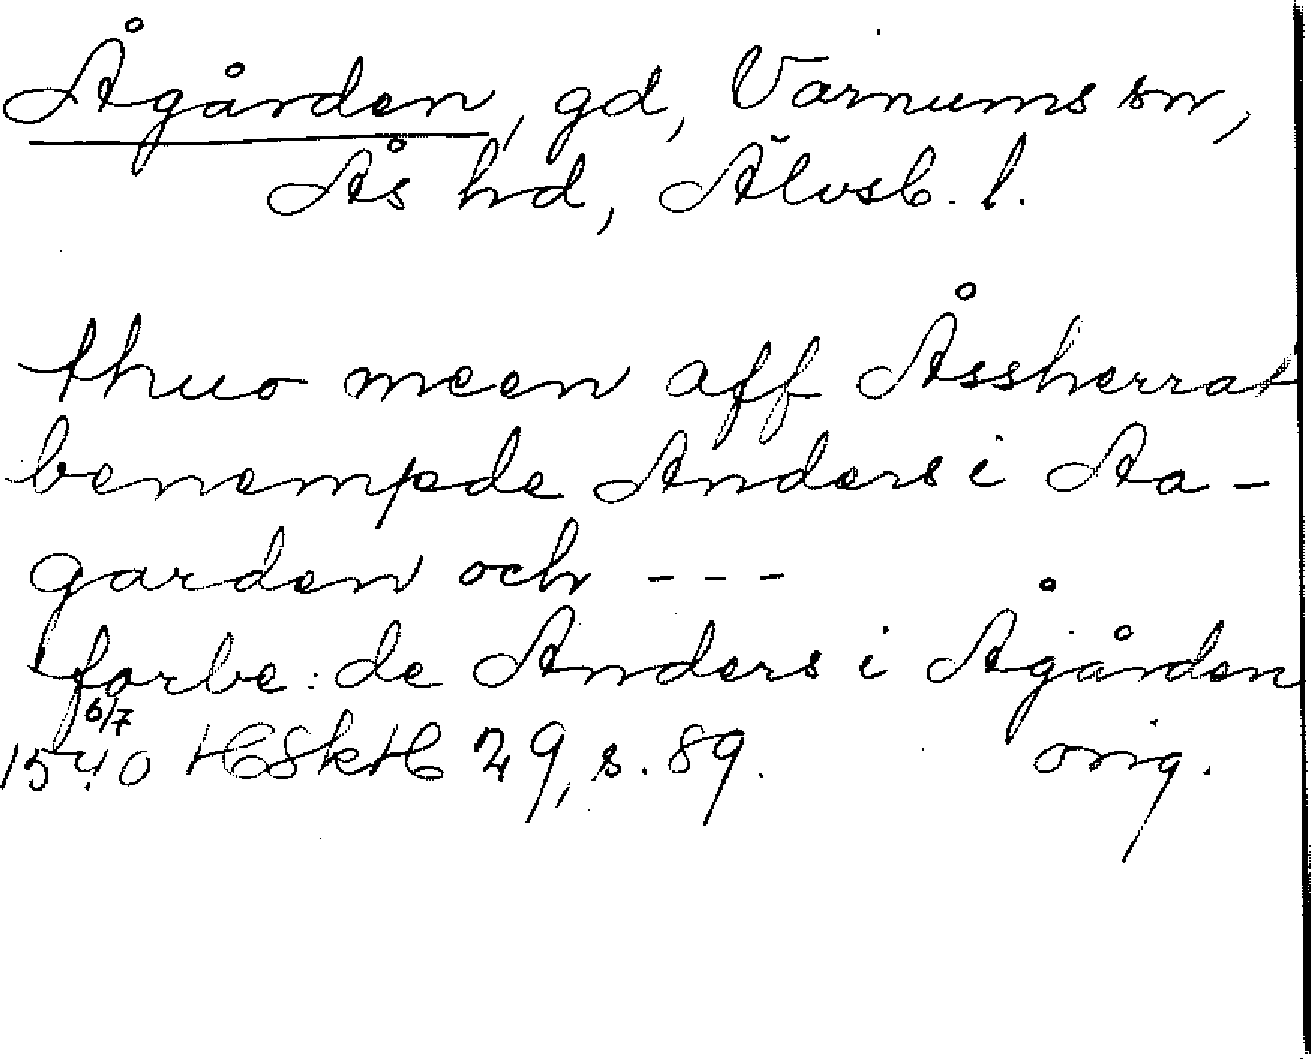 Ågården, gd, Varnums sn,
Ås hd, Älvsb. l.
thuo meen aff Åssherrat
benempde Anders i Aa-
garden och ---
forbe: de Anders i Ågården
6/7
1540 HSkH 29, s. 89. orig.